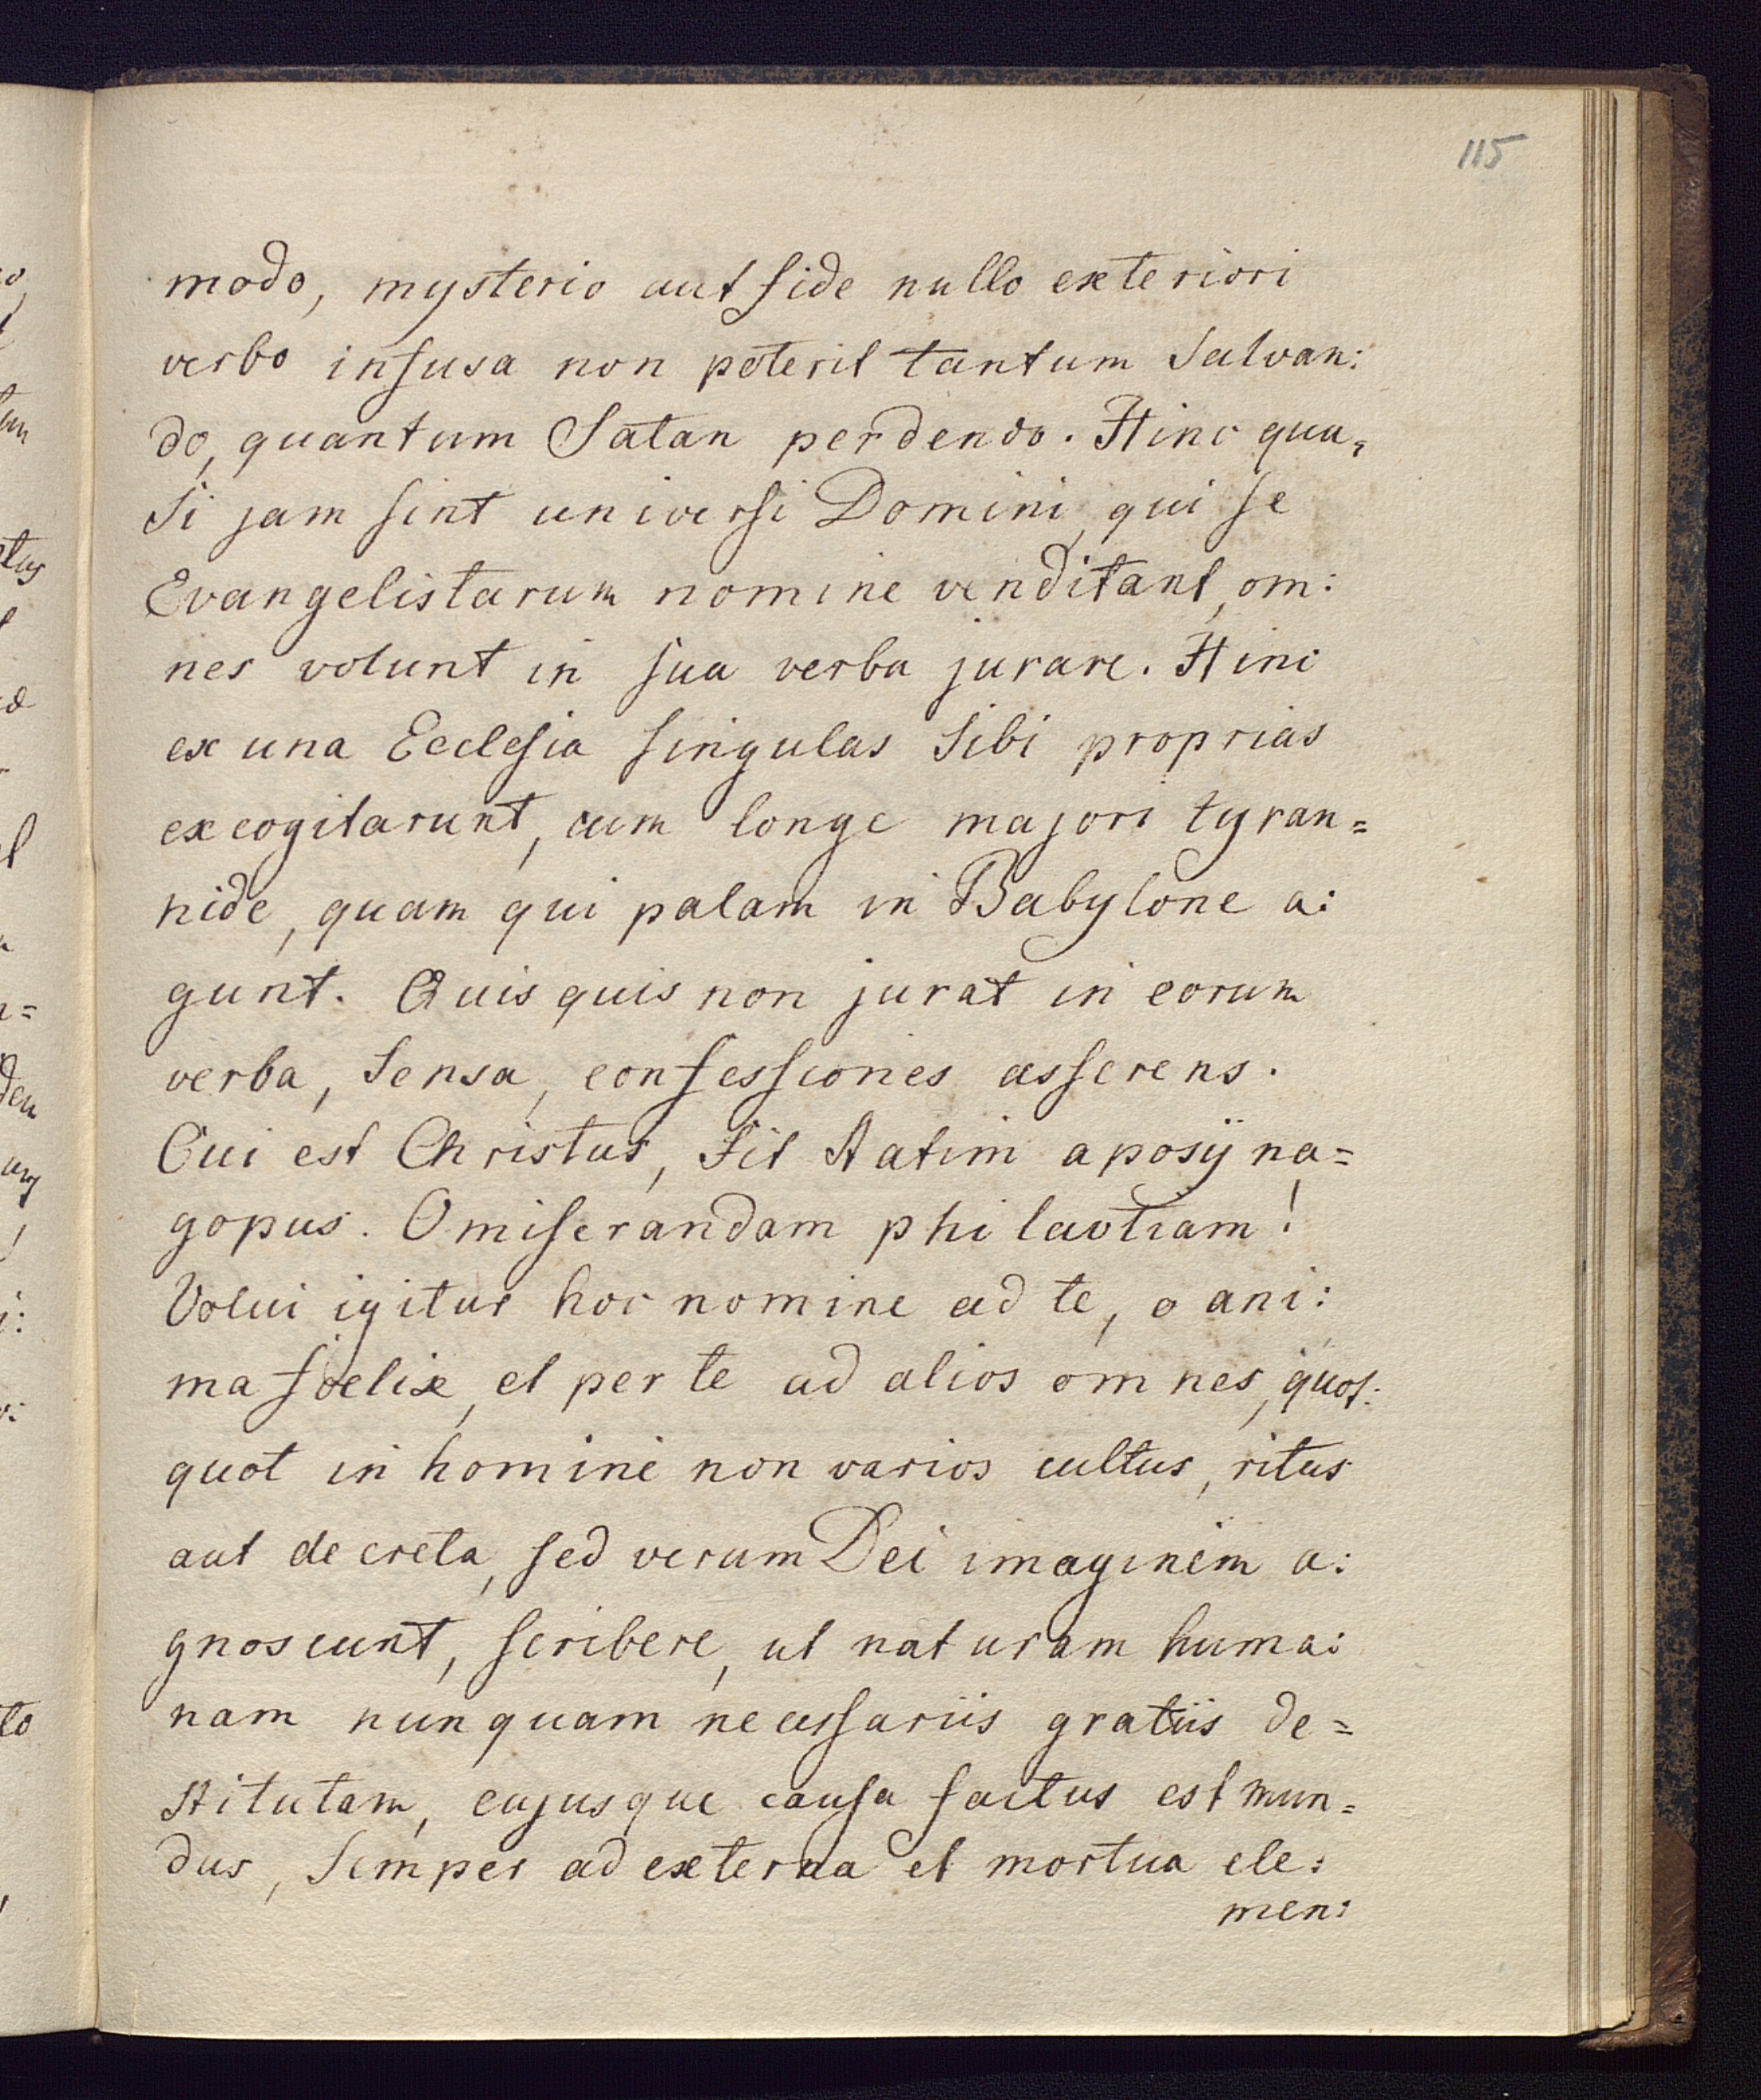 115
modo, mysterio aut fide nullo exteriori
verbo infusa non poterit tantum salvan:
do, quantum Satan perdendo. Hinc qua,
si jam sint universi Domini, qui se
Evangelistarum nomine venditant, om:
nes volunt in sua verba jurare. Hinc
ex una Ecclesia singulas sibi proprias
excogitarunt, cum longe majori tyran=
nide, quam qui palam in Babylone a:
gunt. Quisquis non jurat in eorum
verba, sensa, confessiones asserens.
Cui est Christus, fit statim aposÿna=
gopus. O miserandam philavtiam!
Volui igitur hoc nomine ad te, o ani:
ma foelix, et per te ad alios omnes, quot:
quot in homine non varios cultus, ritus
aut decreta, sed verum Dei imaginem a:
gnoscunt, scribere, ut naturam huma:
nam nunquam necessariis gratiis de=
stitutam, cujusque causa factus est mun=
dus, semper ad externa et mortua ele:
men: